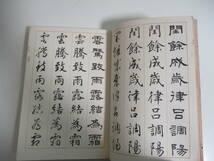 閏餘成歲律呂調陽
閏餘成歲律呂調陽
閏餘成歲律呂調陽
雲騰致雨露結為霜
雲騰致雨露結為霜
雲騰致雨露結為霜